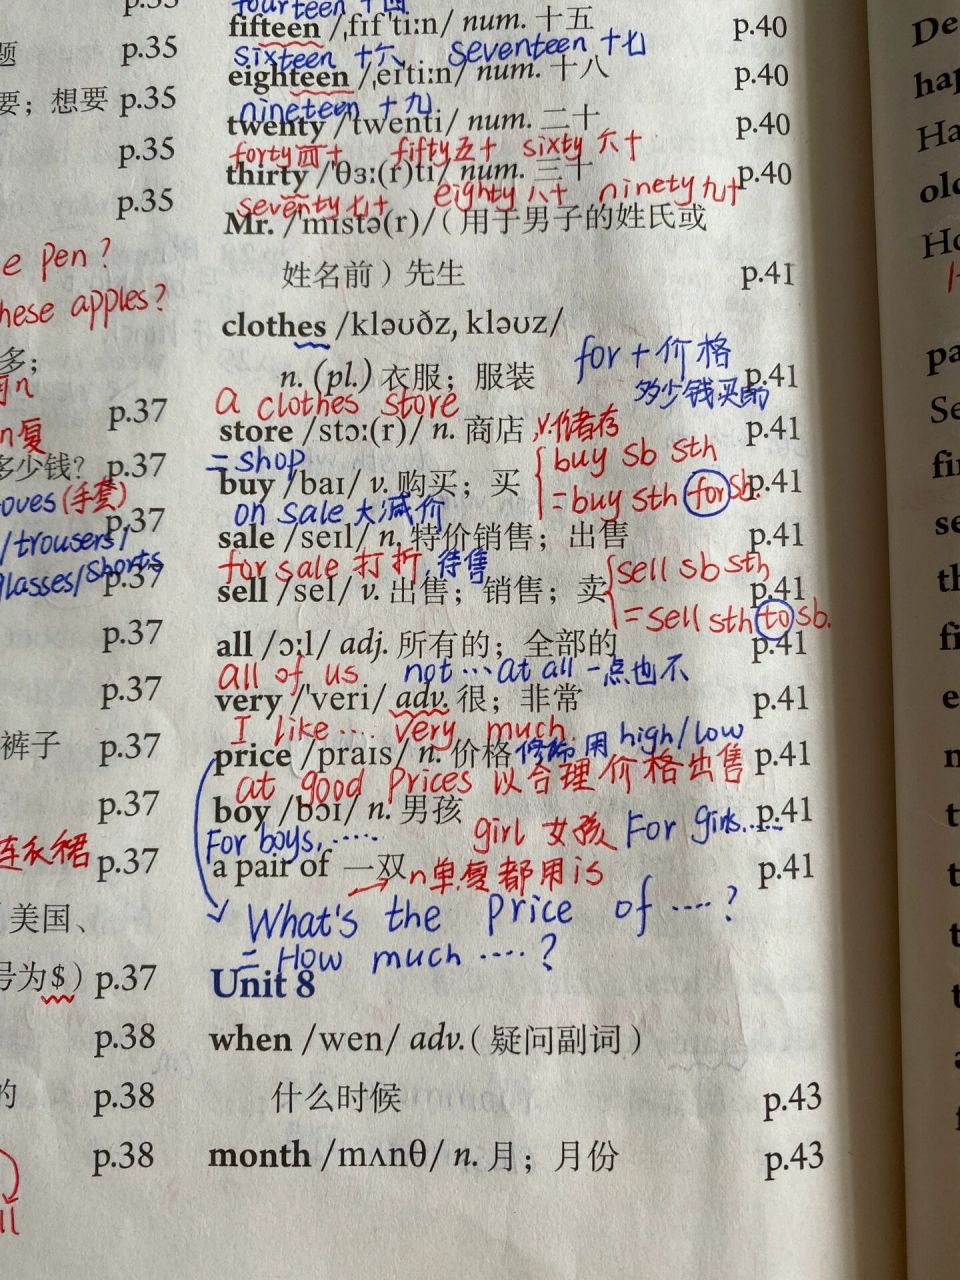 p.35
p.35
要；想要 p.35
p.35
p.35
e pen?
hese apples?
多；
p.37
n复
多少钱？ p.37
oves (手套)
p.37
/trousers/
glasses/shorts
p.37
p.37
p.37
裤子 p.37
p.37
连衣裙 p.37
美国、
号为$) p.37
p.38
的 p.38
p.38
fourteen 十四
fifteen /ˌfɪfˈtiːn/ num. 十五 p.40
sixteen 十六 seventeen 十七
eighteen /ˌeɪˈtiːn/ num. 十八 p.40
nineteen 十九
twenty /ˈtwenti/ num. 二十 p.40
forty 四十 fifty 五十 sixty 六十
thirty /ˈθɜː(r)ti/ num. 三十 p.40
seventy 七十 eighty 八十 ninety 九十
Mr. /ˈmɪstə(r)/（用于男子的姓氏或
姓名前）先生 p.41
clothes /kləʊðz, kləʊz/
for + 价格
n. (pl.) 衣服；服装 p.41
多少钱买的
a clothes store
store /stɔː(r)/ n. 商店 v.储存 p.41
= shop
buy sb sth
buy /baɪ/ v. 购买；买 p.41
= buy sth for sb.
on sale 大减价
sale /seɪl/ n. 特价销售；出售 p.41
for sale 打折, 待售
sell sb sth
sell /sel/ v. 出售；销售；卖 p.41
= sell sth to sb.
all /ɔːl/ adj. 所有的；全部的 p.41
all of us not … at all 一点也不
very /ˈveri/ adv. 很；非常 p.41
I like …. very much
price /praɪs/ n. 价格 修饰用 high/low p.41
at good prices 以合理价格出售
boy /bɔɪ/ n. 男孩 p.41
For boys, …… girl 女孩 For girls, ……
a pair of 一双 n单复都用is p.41
What's the price of ….?
= How much ….?
Unit 8
when /wen/ adv.（疑问副词）
什么时候 p.43
month /mʌnθ/ n. 月；月份 p.43
De
hap
Ha
old
Ho
pa
Se
fin
se
th
fi
e